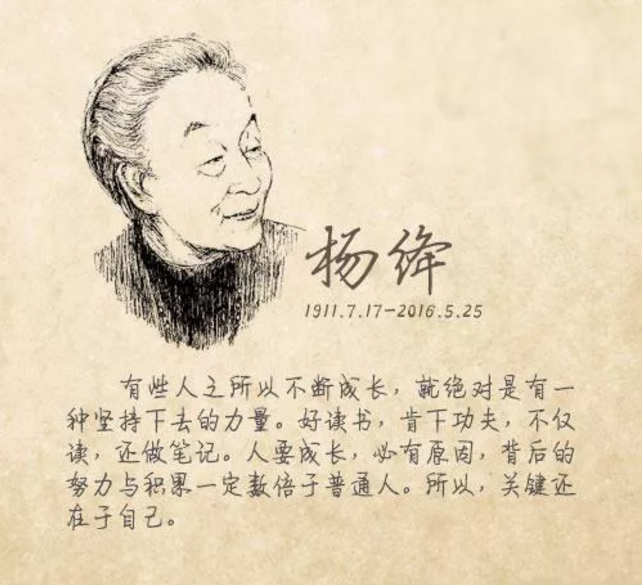 杨绛
1911.7.17-2016.5.25
有些人之所以不断成长，就绝对是有一
种坚持下去的力量。好读书，肯下功夫，不仅
读，还做笔记。人要成长，必有原因，背后的
努力与积累一定数倍于普通人。所以，关键还
在于自己。